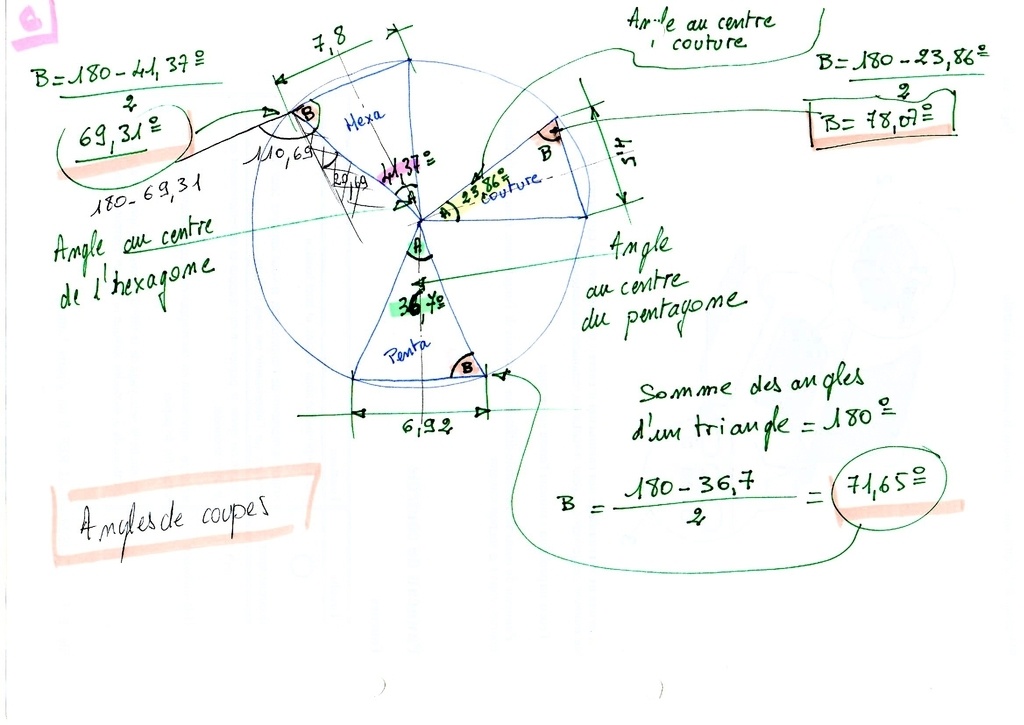 6
7,8
An le au centre
couture
B=180-41,37°
2
69,31°
B=180-23,86°
2
B= 78,07°
B
Hexa
110,69
180-69,31
41,37°
A
23,86°
couture
A
B
Angle au centre
de l'hexagone
Angle
au centre
du pentagone
A
36,7°
Penta
B
6,92
Somme des angles
d'un triangle = 180°
B = 180-36,7 = 71,65°
2
Angles de coupes